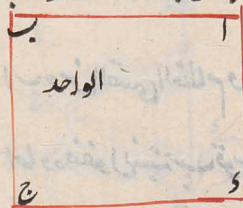 ا ب
الواحد
ء ج